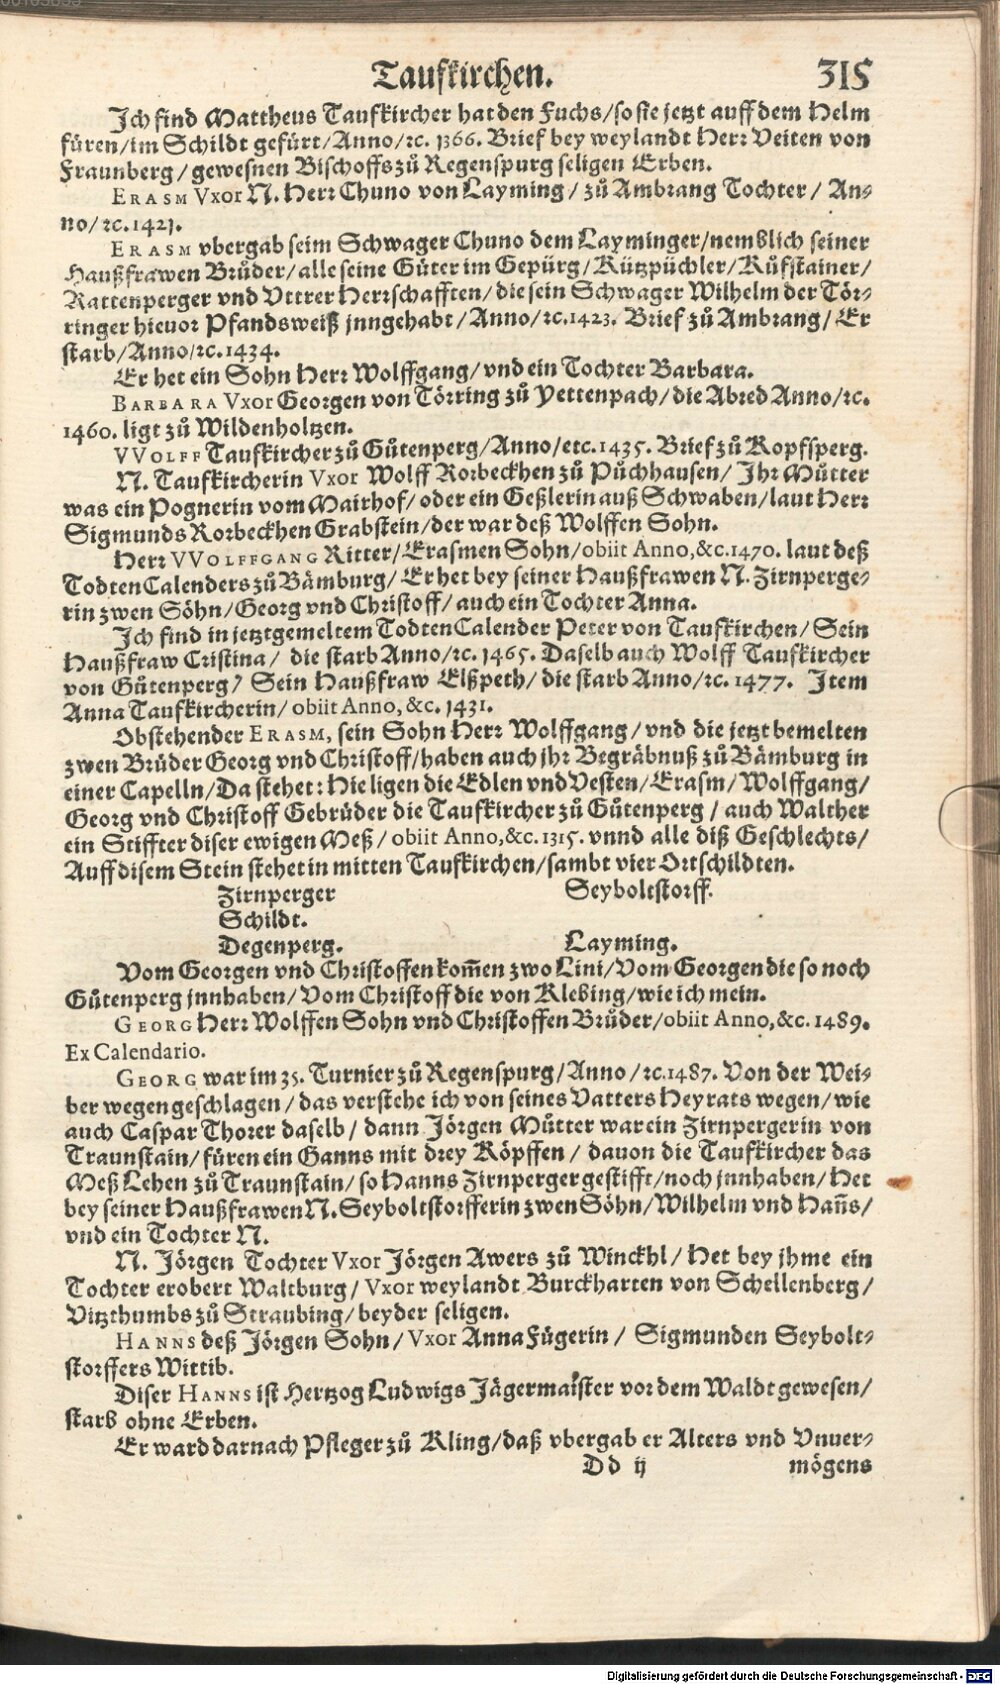 Taufkirchen. 315
Ich find Mattheus Taufkircher hat den Fuchs/so sie jetzt auff dem Helm
füren/im Schildt gefürt/Anno/ꝛc. 1366. Brief bey weylandt Herr Veiten von
Fraunberg/gewesnen Bischoffs zů Regenspurg seligen Erben.
ERASM Vxor N. Herr Chuno von Layming/zů Ambrang Tochter/An-
no/ꝛc. 1421.
ERASM vbergab seim Schwager Chuno dem Layminger/nemblich seiner
Haußfrawen Brůder/alle seine Güter im Gepürg/Kützpüchler/Kůfstainer/
Rattenperger vnd Vttrer Herrschafften/die sein Schwager Wilhelm der Tör-
ringer hieuor Pfandsweiß jnngehabt/Anno/ꝛc. 1423. Brief zů Ambrang/Er
starb/Anno/ꝛc. 1434.
Er het ein Sohn Herr Wolffgang/vnd ein Tochter Barbara.
BARBARA Vxor Georgen von Törring zů Yettenpach/die Abred Anno/ꝛc.
1460. ligt zů Wildenholtzen.
VVOLFF Taufkircher zů Gůtenperg/Anno/etc. 1435. Brief zů Kopfsperg.
N. Taufkircherin Vxor Wolff Rorbeckhen zů Půchhausen/Ihr Můtter
was ein Pognerin vom Mairhof/oder ein Geßlerin auß Schwaben/laut Herr
Sigmunds Rorbeckhen Grabstein/der war deß Wolffen Sohn.
Herr VVOLFFGANG Ritter/Erasmen Sohn/obiit Anno,&c. 1470. laut deß
TodtenCalenders zů Bämburg/Er het bey seiner Haußfrawen N. Zirnperge-
rin zwen Söhn/Georg vnd Christoff/auch ein Tochter Anna.
Ich find in jetztgemeltem TodtenCalender Peter von Taufkirchen/Sein
Haußfraw Cristina/die starb Anno/ꝛc. 1465. Daselb auch Wolff Taufkircher
von Gůtenperg/Sein Haußfraw Elßpeth/die starb Anno/ꝛc. 1477. Item
Anna Taufkircherin/obiit Anno,&c. 1431.
Obstehender ERASM, sein Sohn Herr Wolffgang/vnd die jetzt bemelten
zwen Brüder Georg vnd Christoff/haben auch jhr Begräbnuß zů Bämburg in
einer Capelln/Da stehet: Hie ligen die Edlen vnd Vesten/Erasm/Wolffgang/
Georg vnd Christoff Gebrüder die Taufkircher zů Gůtenperg/auch Walther
ein Stiffter diser ewigen Meß/obiit Anno,&c. 1315. vnnd alle diß Geschlechts/
Auff disem Stein stehet in mitten Taufkirchen/sambt vier Ortschildten.
Zirnperger Seyboltstorff.
Schildt.
Degenperg. Layming.
Vom Georgen vnd Christoffen kom̃en zwo Lini/Vom Georgen die so noch
Gůtenperg jnnhaben/Vom Christoff die von Klebing/wie ich mein.
GEORG Herr Wolffen Sohn vnd Christoffen Brůder/obiit Anno,&c. 1489.
Ex Calendario.
GEORG war im 35. Turnier zů Regenspurg/Anno/ꝛc. 1487. Von der Wei-
ber wegen geschlagen/das verstehe ich von seines Vatters Heyrats wegen/wie
auch Caspar Thorer daselb/dann Jörgen Můtter war ein Zirnpergerin von
Traunstain/füren ein Ganns mit drey Köpffen/dauon die Taufkircher das
Meß Lehen zů Traunstain/so Hanns Zirnperger gestifft/noch jnnhaben/Het
bey seiner Haußfrawen N. Seyboltstorfferin zwen Söhn/Wilhelm vnd Hañs/
vnd ein Tochter N.
N. Jörgen Tochter Vxor Jörgen Awers zů Winckhl/Het bey jhme ein
Tochter erobert Waltburg/Vxor weylandt Burckharten von Schellenberg/
Vitzthumbs zů Straubing/beyder seligen.
HANNS deß Jörgen Sohn/Vxor Anna Fügerin/Sigmunden Seybolt-
storffers Wittib.
Diser HANNS ist Hertzog Ludwigs Jägermaister vor dem Waldt gewesen/
starb ohne Erben.
Er ward darnach Pfleger zů Kling/daß vbergab er Alters vnd Vnuer-
Dd ij mögens
Digitalisierung gefördert durch die Deutsche Forschungsgemeinschaft - DFG